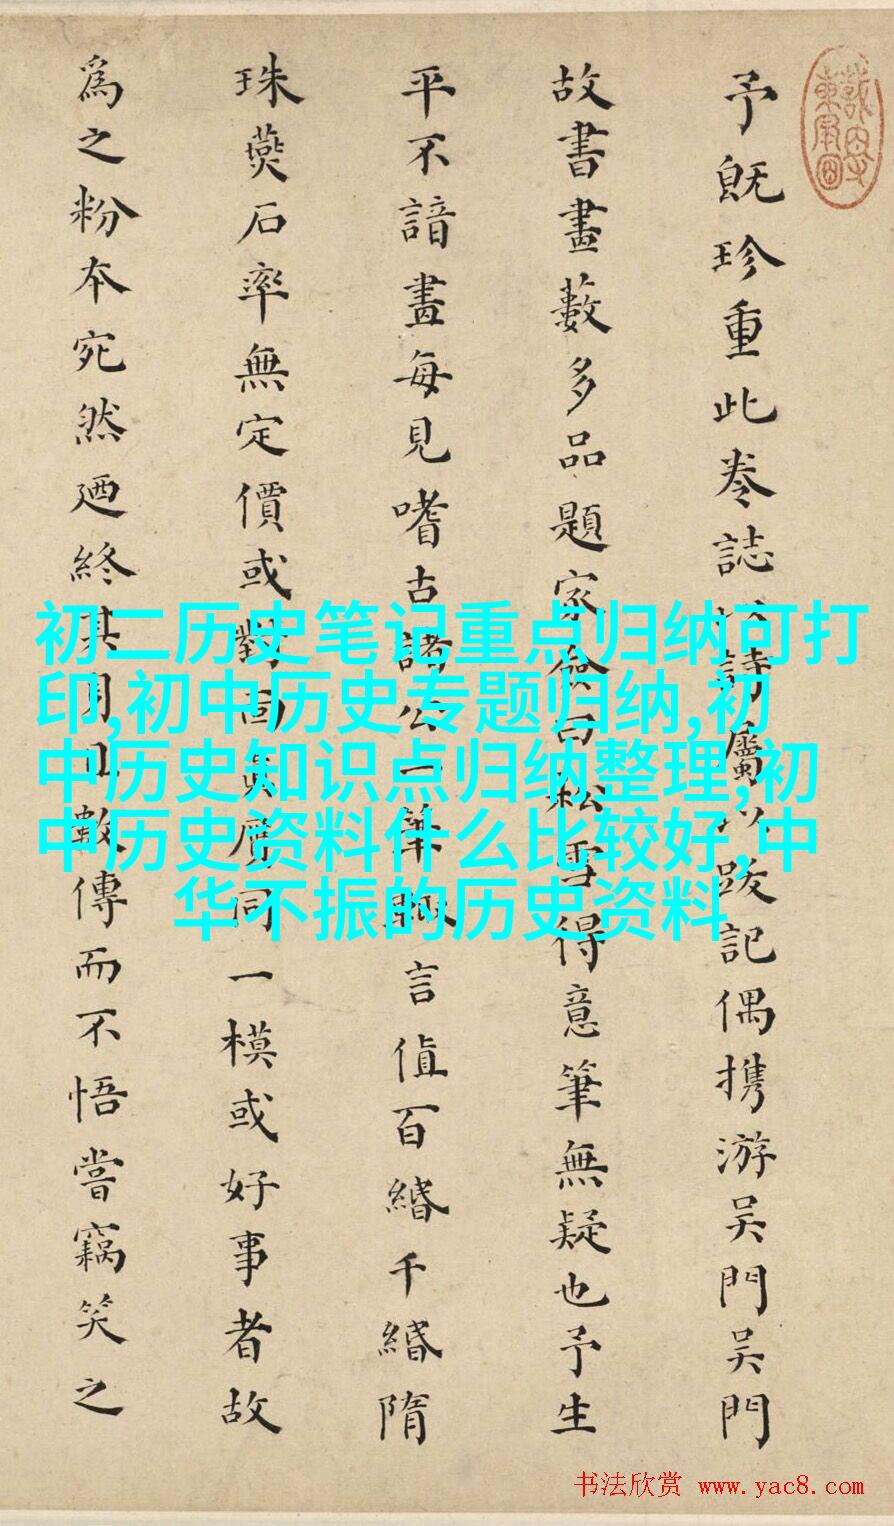 予既珍重此卷誌以詩屬以跋記偶携游吳門吳門
故書畫藪多品題家僉曰松雪得意筆無疑也予生
平不諳畫每見嗜古諸公一筆輒言值百緡千緡隋
珠燕石率無定價或對真贋同一模或好事者故
為之粉本宛然迺終其數傳而不悟嘗竊笑之
初二历史笔记重点归纳可打
印,初中历史专题归纳,初
中历史知识点归纳整理,初
中历史资料什么比较好,中
华不振的历史资料
书法欣赏 www.yac8.com